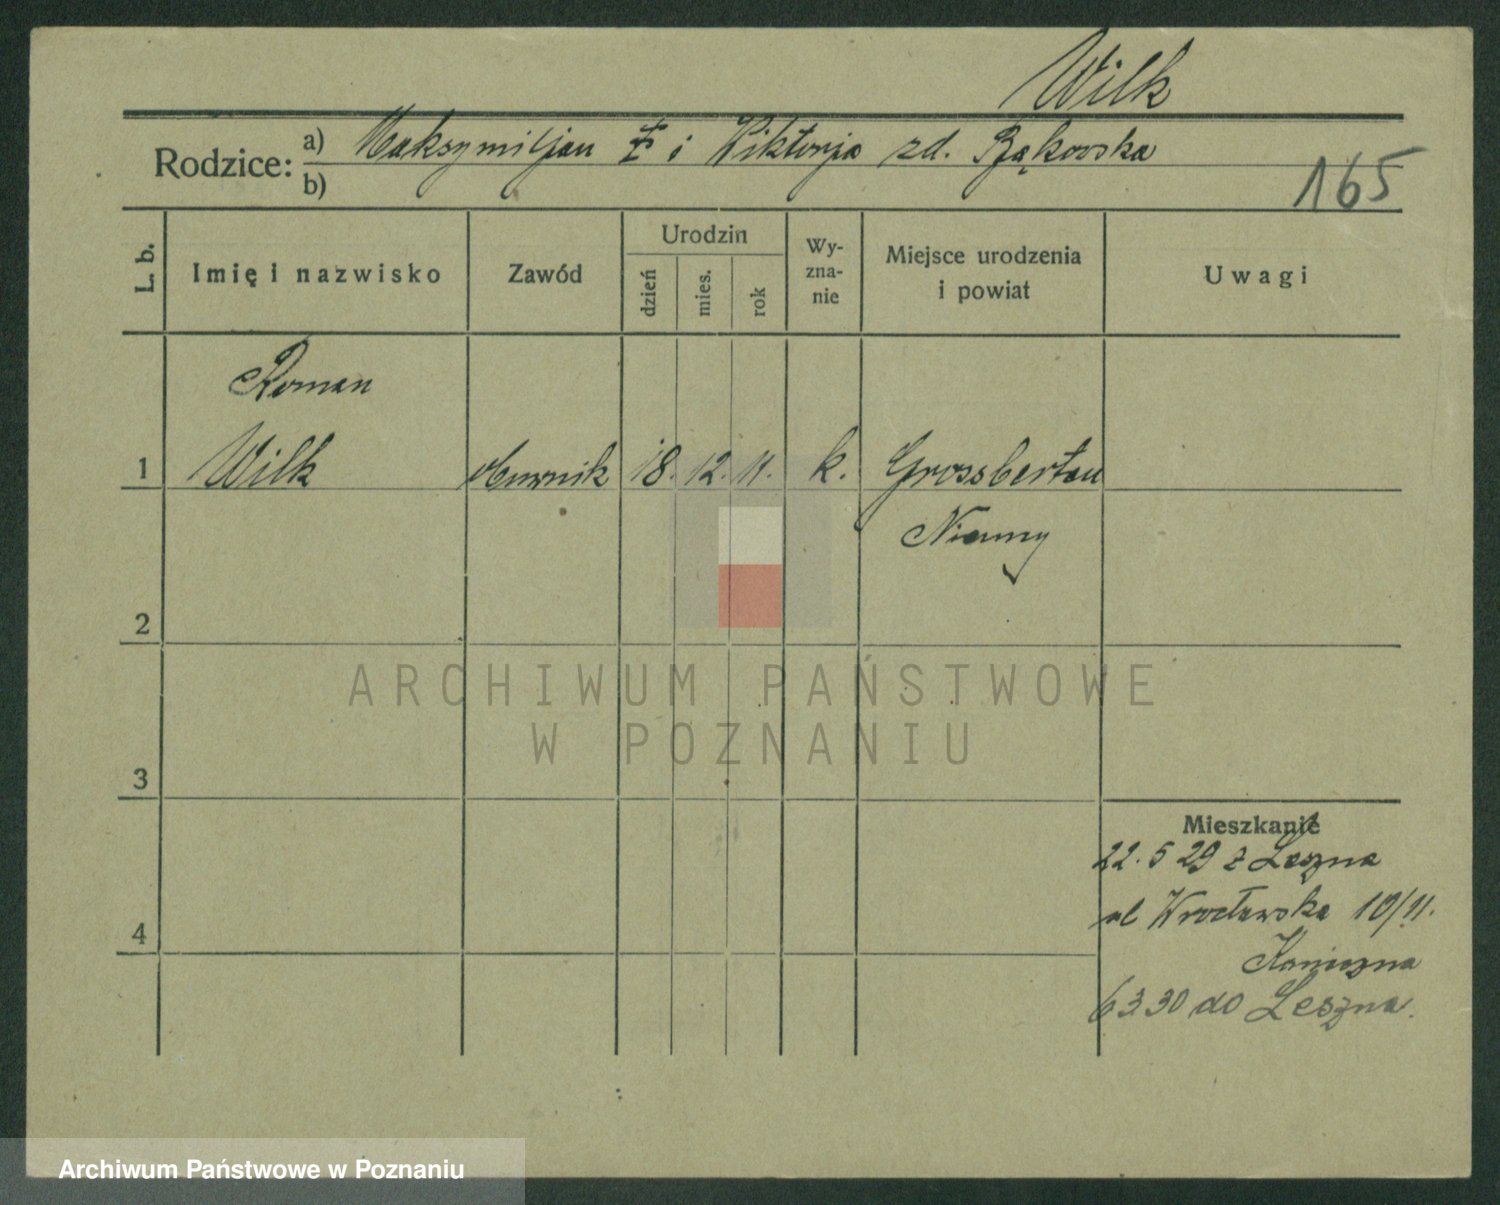 Wilk
Rodzice: a) Maksymiljan ‡ i Wiktorja zd. Bąkowska
b)
165
L. b.
Imię i nazwisko
Zawód
Urodzin
dzień
mies.
rok
Wy-
zna-
nie
Miejsce urodzenia
i powiat
Uwagi
Roman
1 Wilk 18. 12. 11. k. Grossbertau
Niemcy
2
ARCHIWUM PAŃSTWOWE
W POZNANIU
3
Mieszkanie
22. 5 29 z Leszna
ul Wrocławska 10/11.
4
63 30 do Leszna.
Archiwum Państwowe w Poznaniu